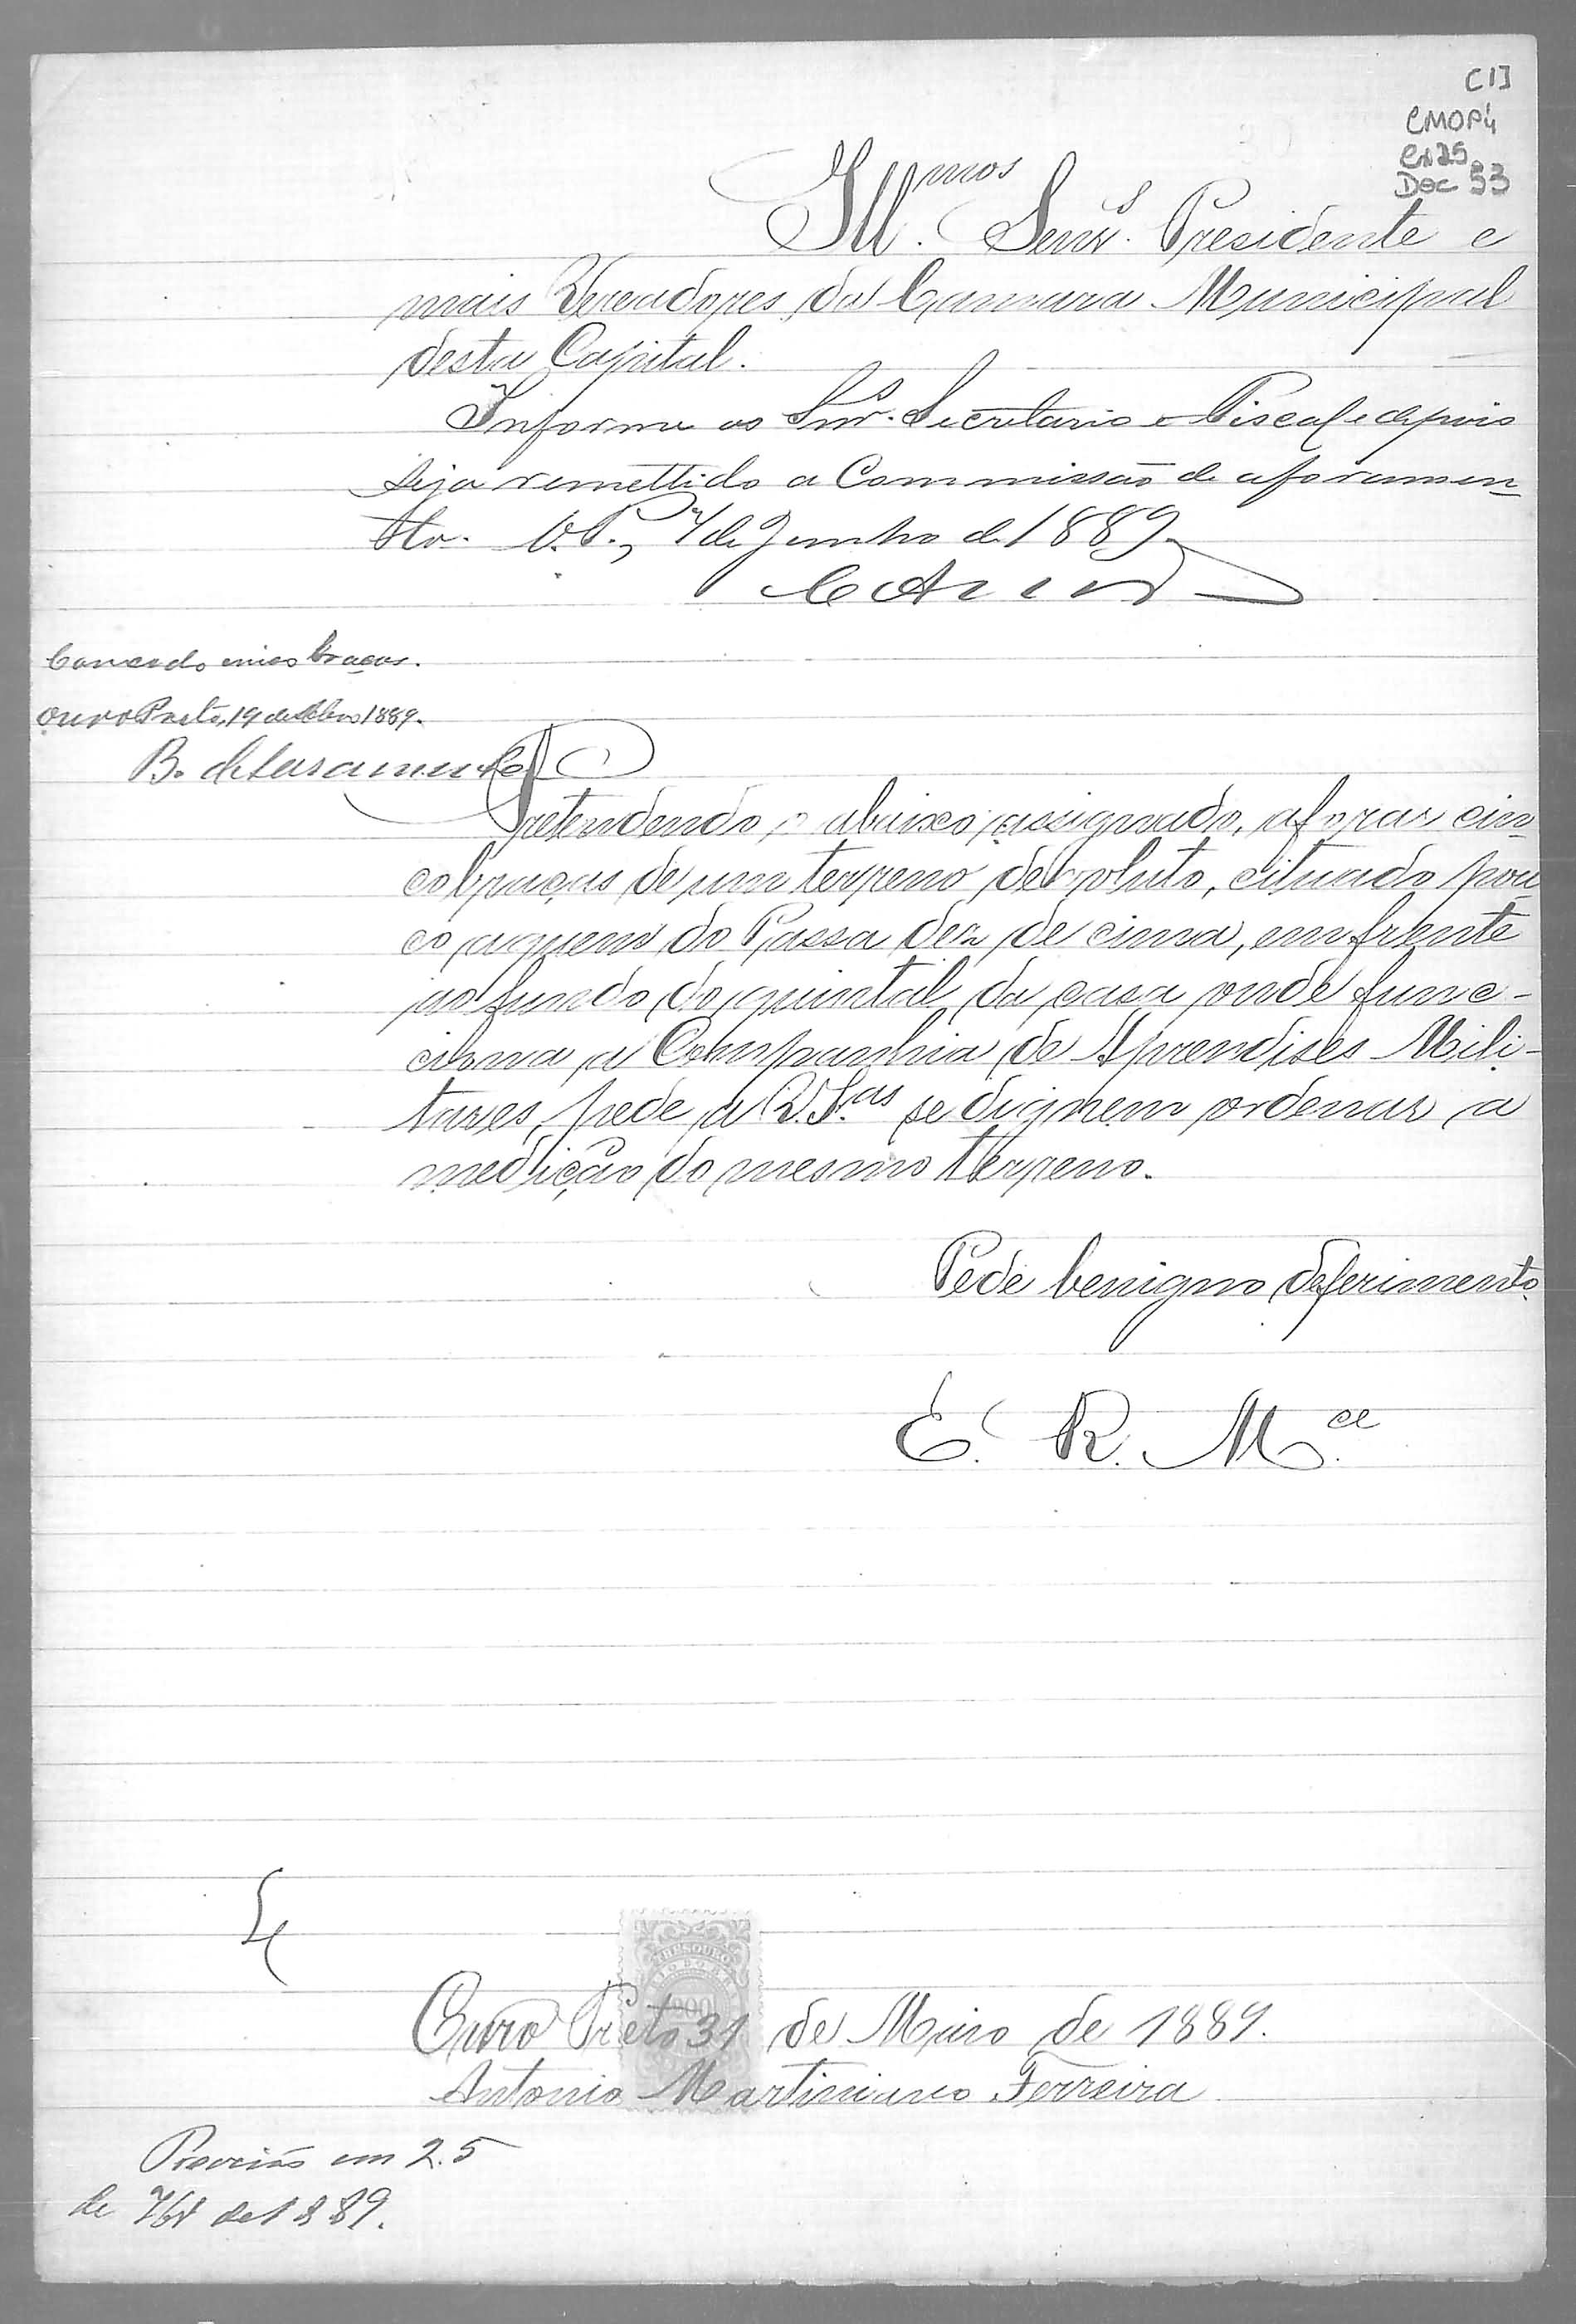 [1]
CMOP4
Cx25
Doc 53
Ill.mos Senr.s Presidente e
mais Vereadores da Camara Municipal
desta Capital.
Informe os Snr.s Secretario e Fiscal e depois
seja remettido a Commissão de aforamen-
to. O. P., 7 de Junho de 1889
Concedo cinco braças.
Ouro Preto, 19 de 1889.
B. de Saramenha
Pretendendo o abaixo assignado, aforar cin
co braças de um terreno devoluto, cituado pou
co aquem do Passa dez de cima, em frente
ao fundo do quintal da casa onde func-
ciona a Companhia de Aprendises Mili-
tares, pede a V. S.as se dignem ordenar a
medição do mesmo terreno.
Pede benigno deferimento.
E. R. M.ce
THESOURO
200
Ouro Preto 31 de Maio de 1889.
Antonio Martiniano Ferreira
Provisão em 25
de 7br de 1889.